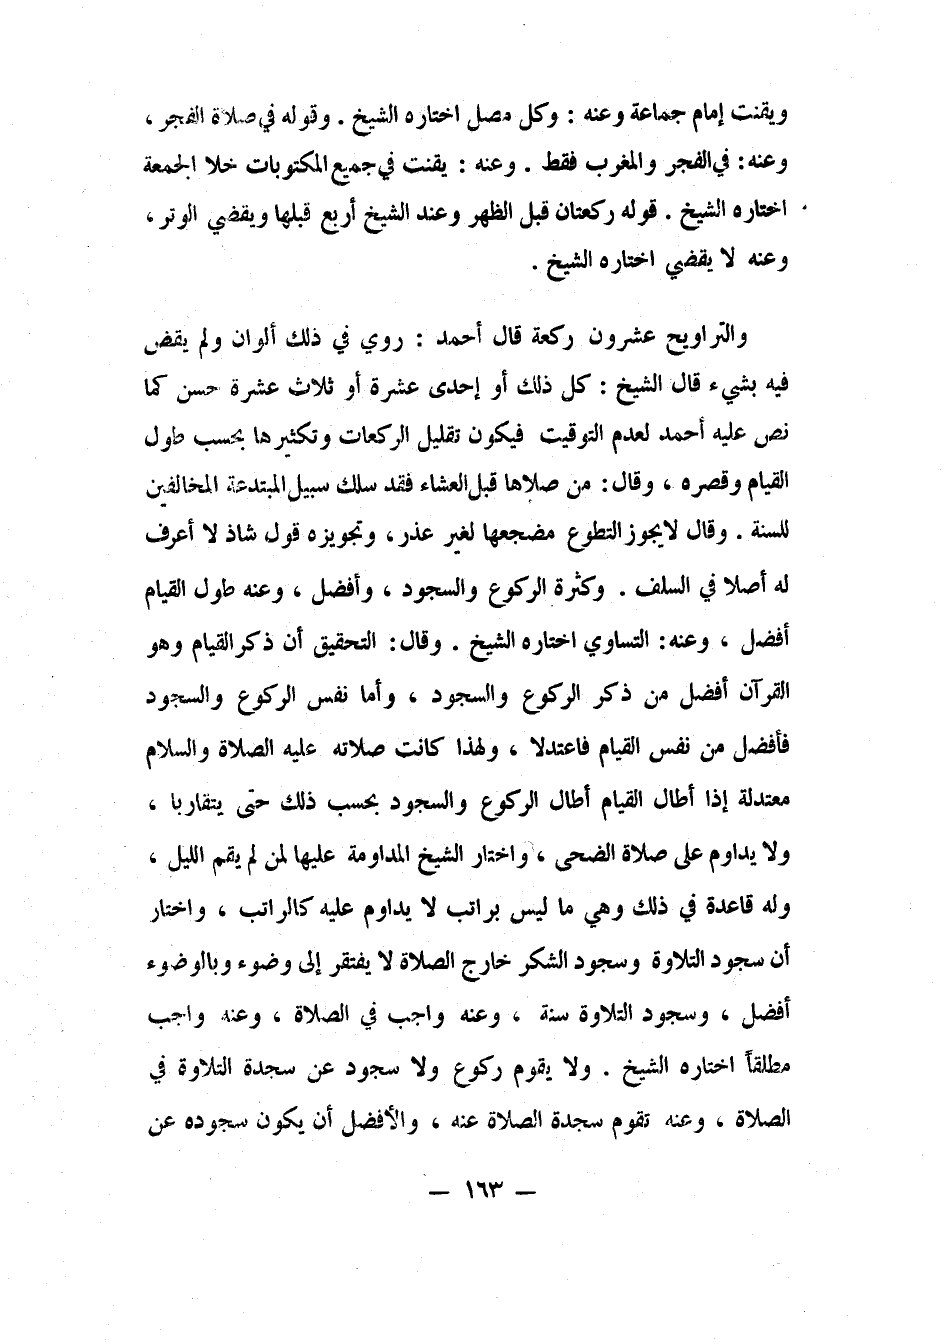 ويقنت إمام جماعة وعنه : وكل مصل اختاره الشيخ . وقوله في صلاة الفجر ،
وعنه : في الفجر والمغرب فقط . وعنه : يقنت في جميع المكتوبات خلا الجمعة
اختاره الشيخ . قوله ركعتان قبل الظهر وعند الشيخ أربع قبلها ويقضي الوتر ،
وعنه لا يقضي اختاره الشيخ .
والتراويح عشرون ركعة قال أحمد : روي في ذلك ألوان ولم يقض
فيه بشيء قال الشيخ : كل ذلك أو إحدى عشرة أو ثلاث عشرة حسن كما
نص عليه أحمد لعدم التوقيت فيكون تقليل الركعات وتكثيرها بحسب طول
القيام وقصره ، وقال : من صلاها قبل العشاء فقد سلك سبيل المبتدعة المخالفين
للسنة . وقال لا يجوز التطوع مضجعها لغير عذر ، وتجويزه قول شاذ لا أعرف
له أصلا في السلف . وكثرة الركوع والسجود ، وأفضل ، وعنه طول القيام
أفضل ، وعنه : التساوي اختاره الشيخ . وقال : التحقيق أن ذكر القيام وهو
القرآن أفضل من ذكر الركوع والسجود ، وأما نفس الركوع والسجود
فأفضل من نفس القيام فاعتدلا ، ولهذا كانت صلاته عليه الصلاة والسلام
معتدلة إذا أطال القيام أطال الركوع والسجود بحسب ذلك حتى يتقاربا ،
ولا يداوم على صلاة الضحى ، واختار الشيخ المداومة عليها لمن لم يقم الليل ،
وله قاعدة في ذلك وهي ما ليس براتب لا يداوم عليه كالراتب ، واختار
أن سجود التلاوة وسجود الشكر خارج الصلاة لا يفتقر إلى وضوء وبالوضوء
أفضل ، وسجود التلاوة سنة ، وعنه واجب في الصلاة ، وعنه واجب
مطلقاً اختاره الشيخ . ولا يقوم ركوع ولا سجود عن سجدة التلاوة في
الصلاة ، وعنه تقوم سجدة الصلاة عنه ، والأفضل أن يكون سجوده عن
— ١٦٣ —